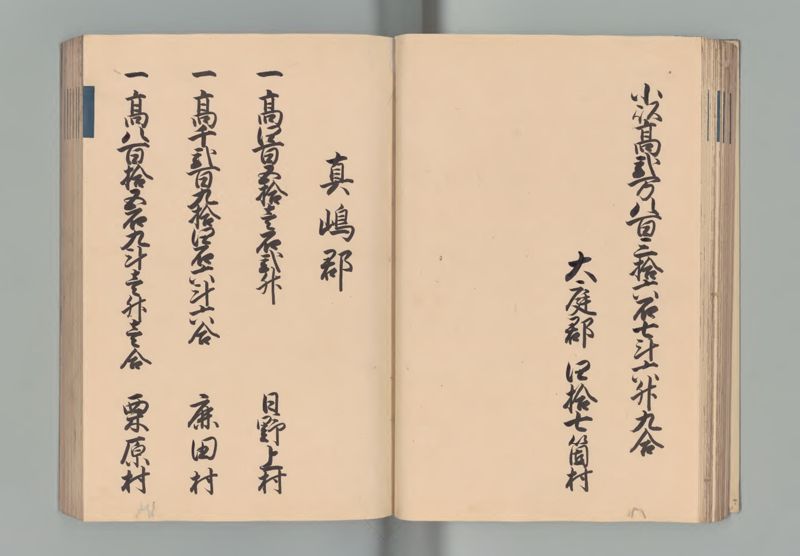 小以高弐万八百三拾六石七斗六升九合
大庭郡 四拾七箇村
真嶋郡
一 高四百五拾壱石弐升 日野上村
一 高千弐百九拾四石六斗六合 鹿田村
一 高八百拾五石九斗壱升壱合 栗原村